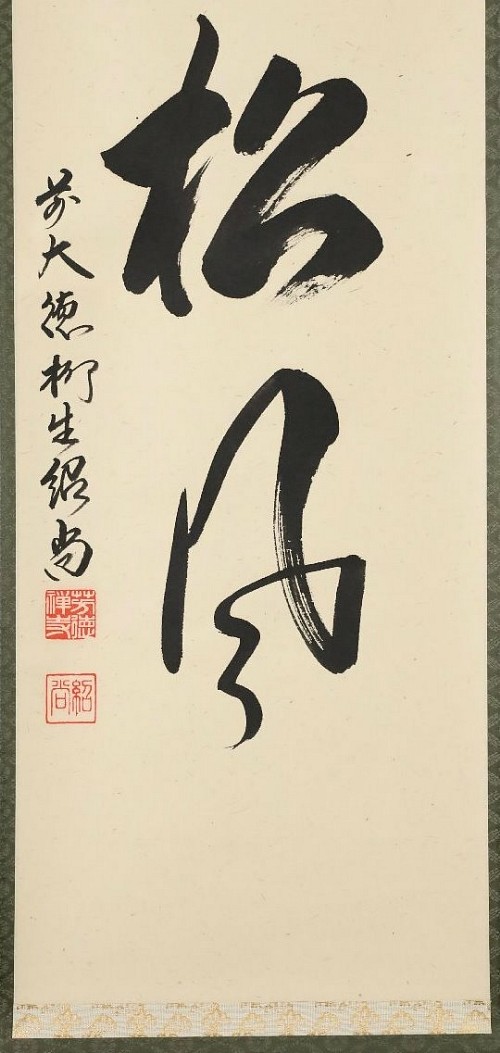 松風
前大徳柳生紹尚
芳徳禅寺
紹尚